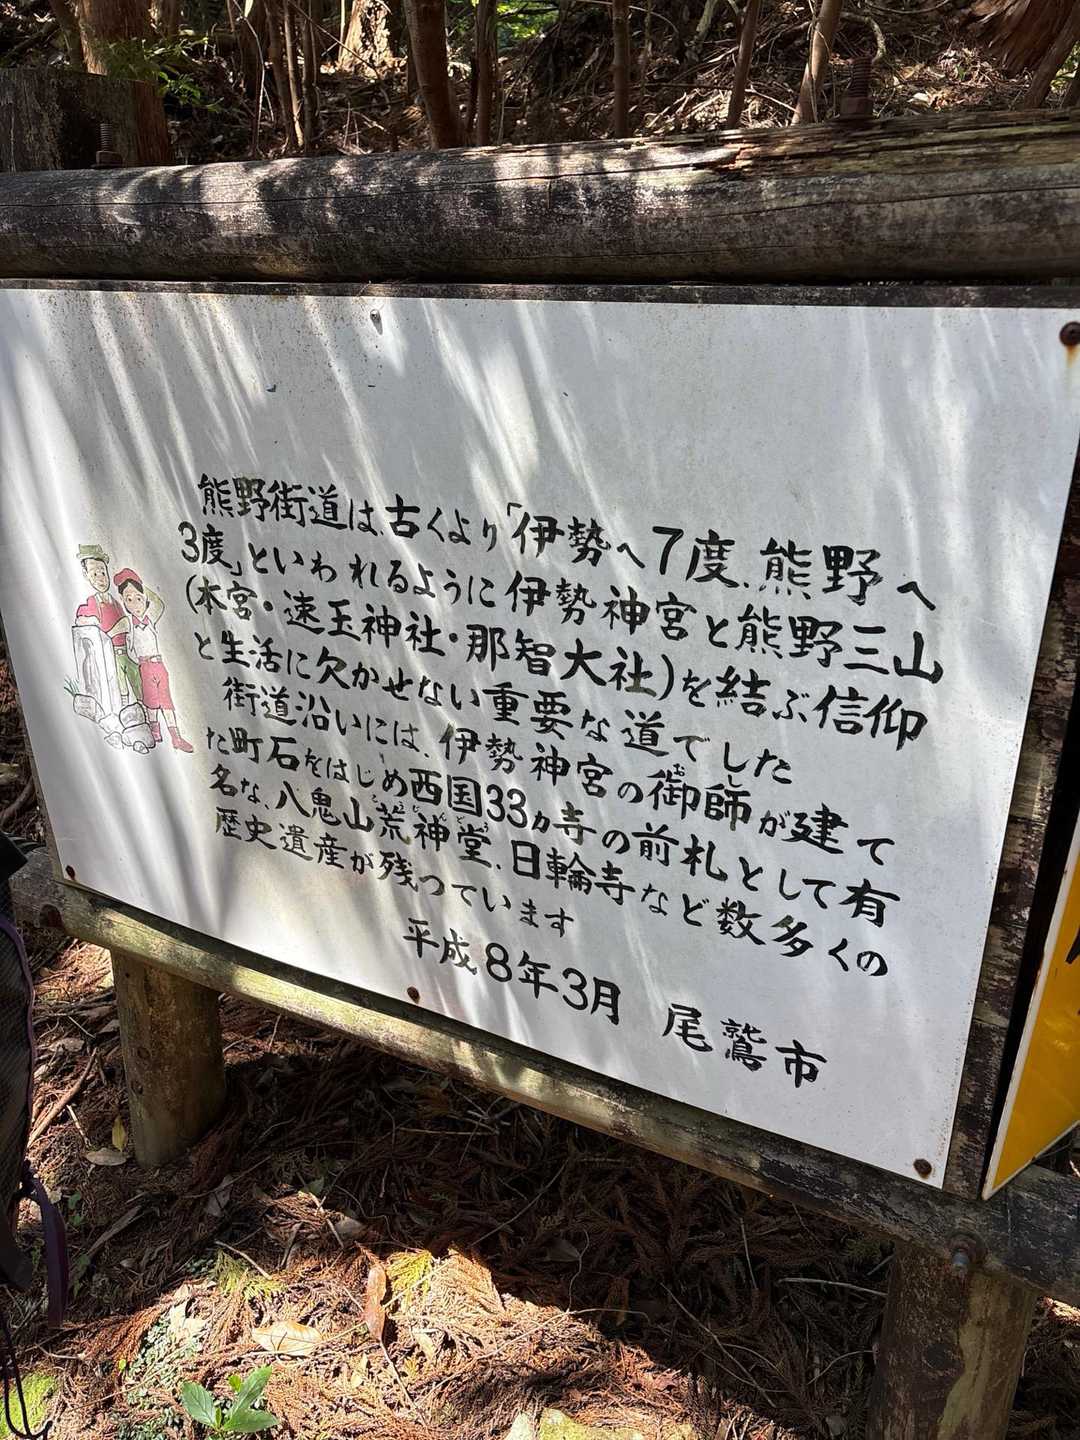 熊野街道は、古くより「伊勢へ7度、熊野へ
3度」といわれるように伊勢神宮と熊野三山
(本宮・速玉神社・那智大社)を結ぶ信仰
と生活に欠かせない重要な道でした
街道沿いには、伊勢神宮の御師が建て
た町石をはじめ西国33カ寺の前札として有
名な、八鬼山荒神堂、日輪寺など数多くの
歴史遺産が残っています
平成8年3月 尾鷲市